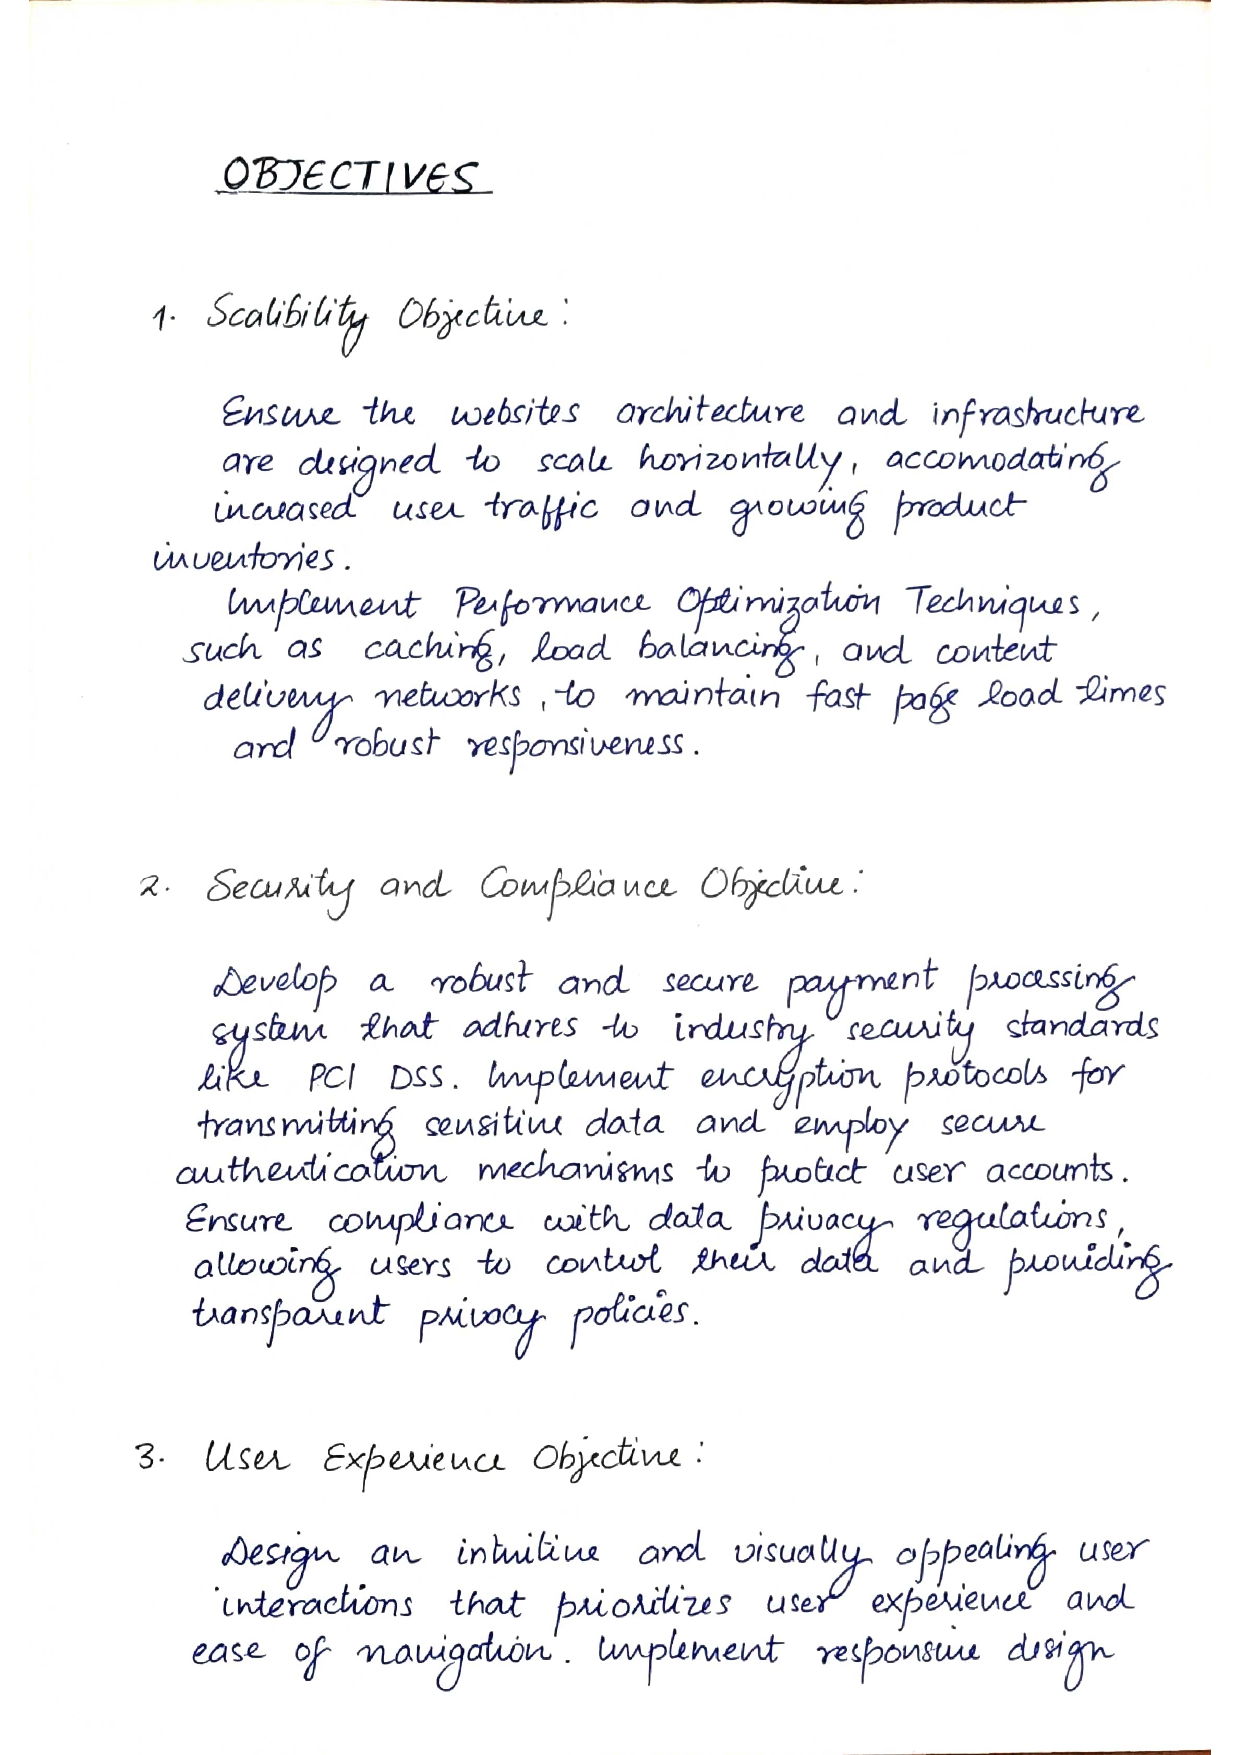 OBJECTIVES
1. Scalibility Objective:
Ensure the websites architecture and infrastructure
are designed to scale horizontally, accomodating
increased user traffic and growing product
inventories.
Implement Performance Optimization Techniques,
such as caching, load balancing, and content
delivery networks, to maintain fast page load times
and robust responsiveness.
2. Security and Compliance Objective:
Develop a robust and secure payment processing
system that adheres to industry security standards
like PCI DSS. Implement encryption protocols for
transmitting sensitive data and employ secure
authentication mechanisms to protect user accounts.
Ensure compliance with data privacy regulations,
allowing users to control their data and providing
transparent privacy policies.
3. User Experience Objective:
Design an intuitive and visually appealing user
interactions that prioritizes user experience and
ease of navigation. Implement responsive design